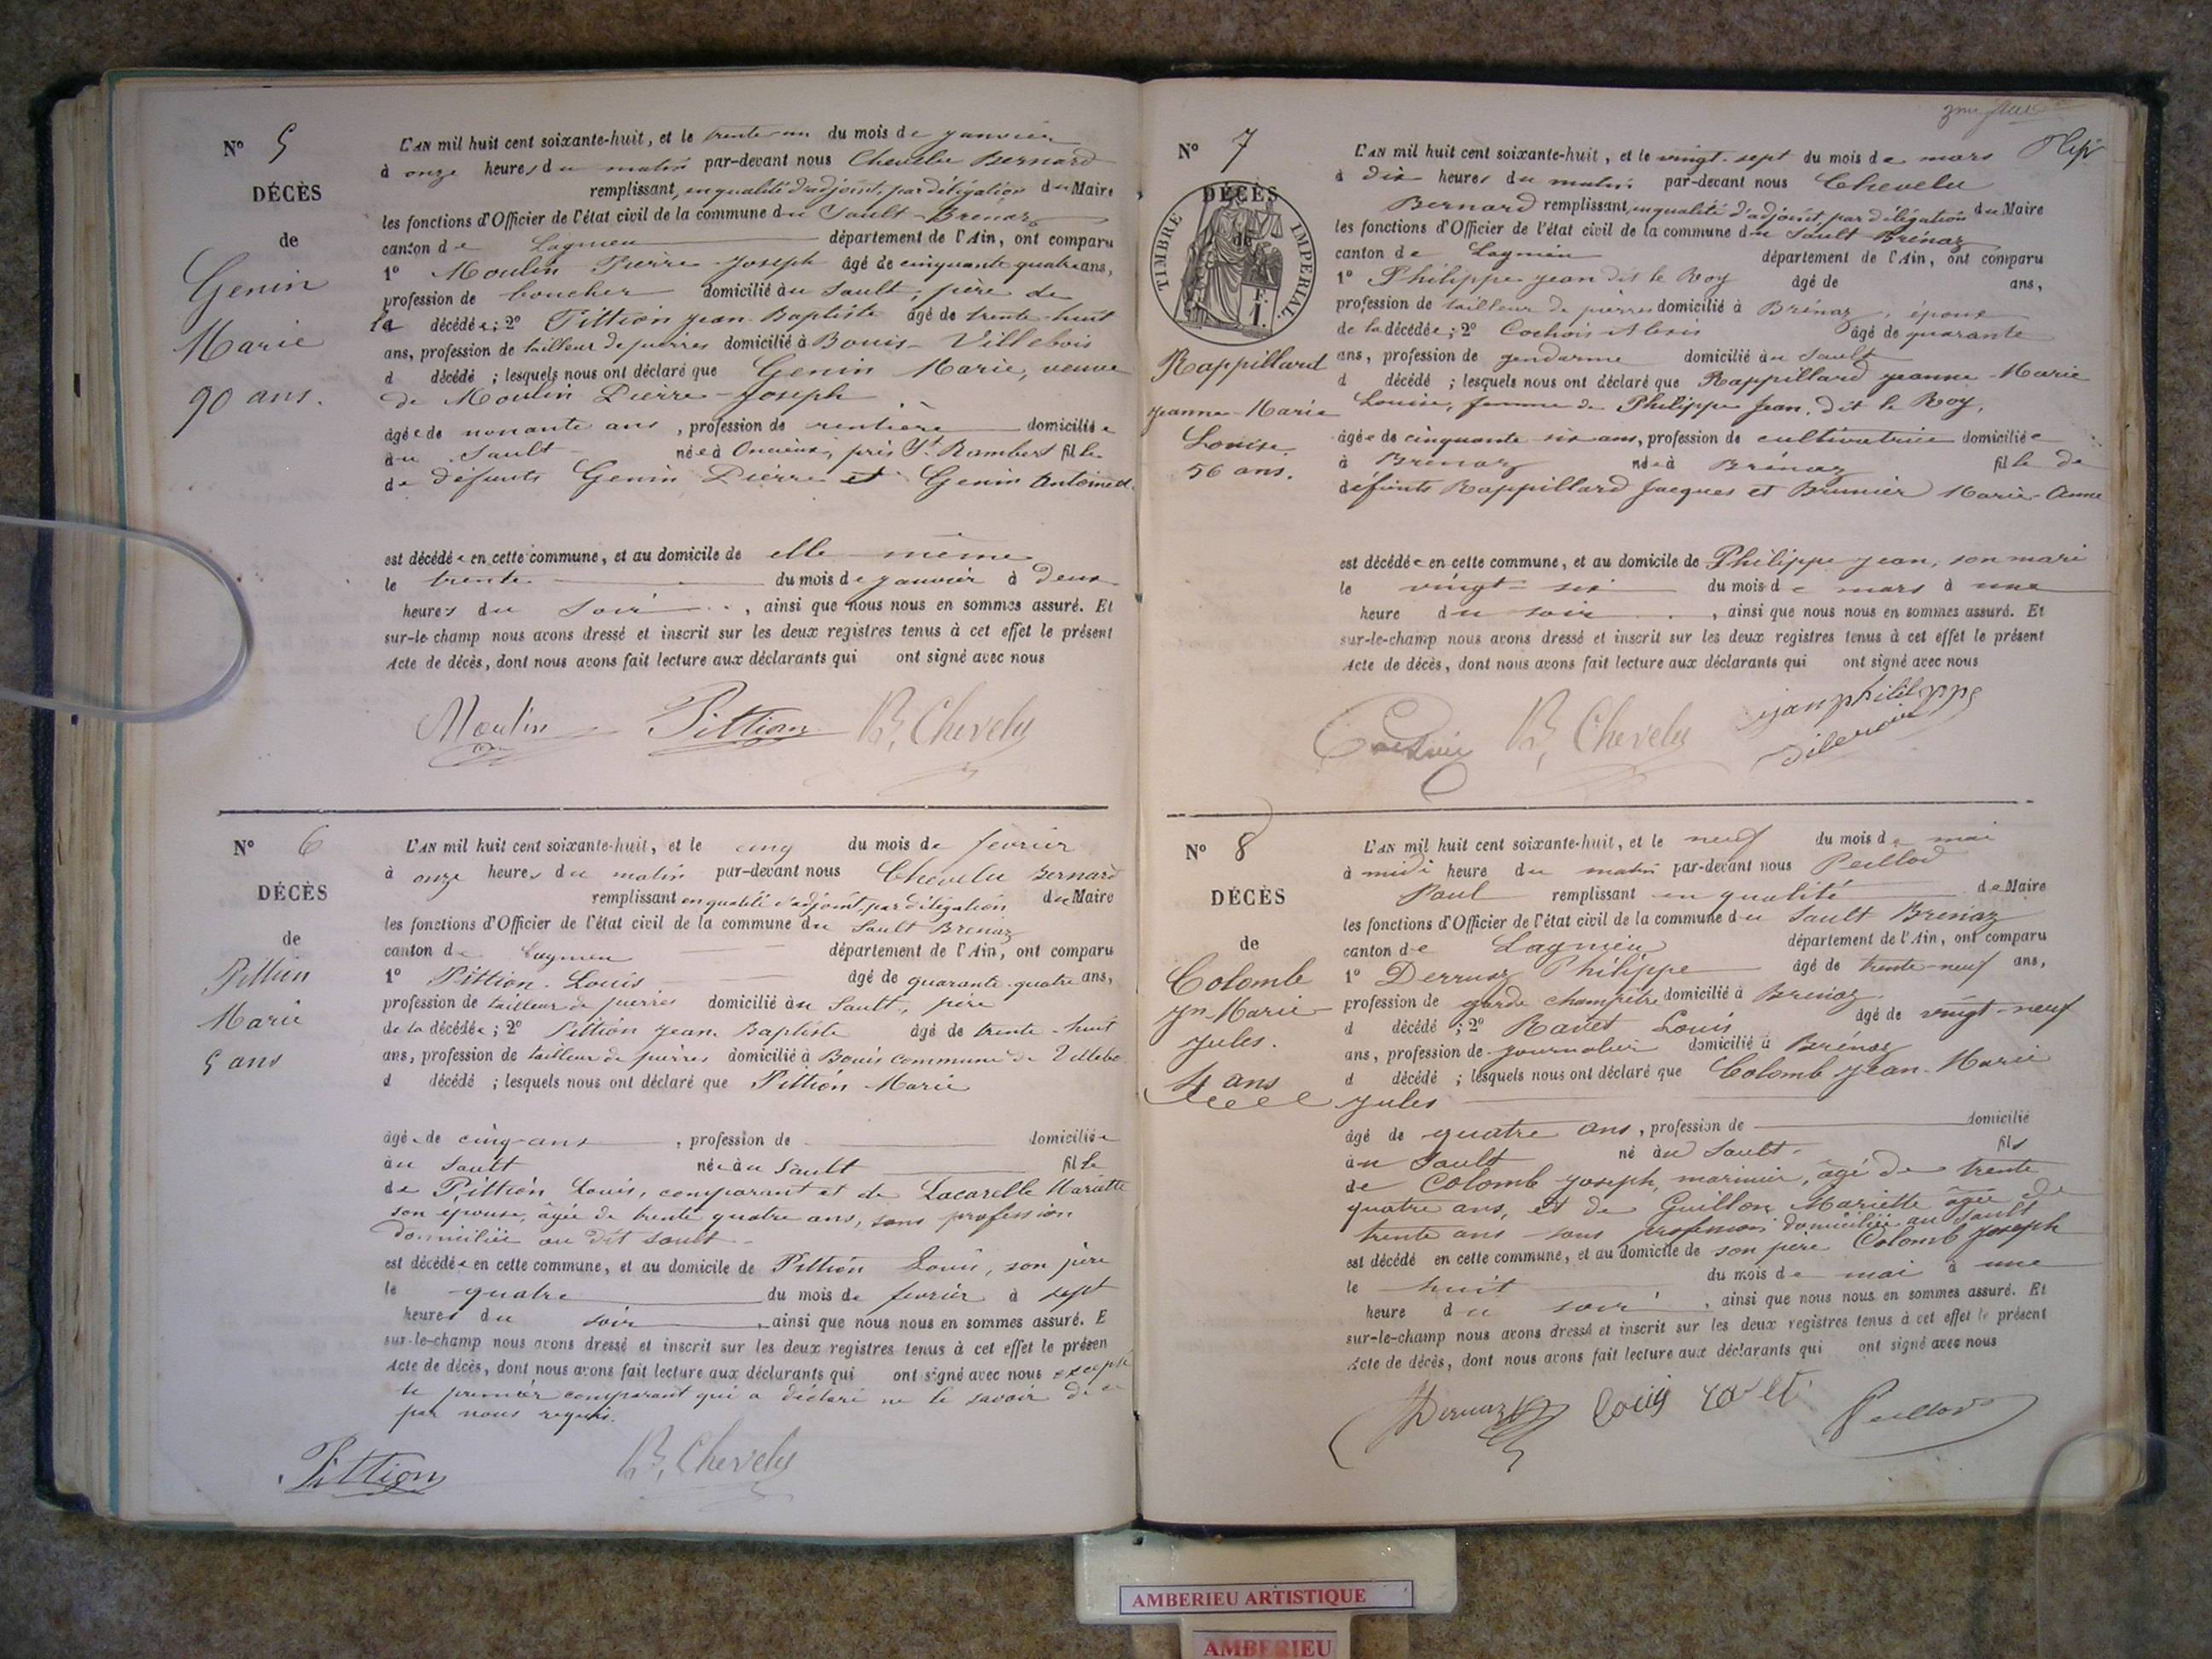 N° 5
DÉCÈS
de
Genin
Marie
90 ans.
L'AN mil huit cent soixante-huit, et le trente-un du mois de janvier
à onze heures du matin par-devant nous Chevelu Bernard
remplissant, en qualité d'adjoint, par délégation du Maire
les fonctions d'Officier de l'état civil de la commune du Sault-Brenaz
canton de Lagnieu département de l'Ain, ont comparu
1° Moulin Pierre-Joseph âgé de cinquante quatre ans,
profession de boucher domicilié au Sault, père de
la décédée; 2° Pittion Jean-Baptiste âgé de trente-huit
ans, profession de tailleur de pierres domicilié à Bouis-Villebois
d décédé ; lesquels nous ont déclaré que Genin Marie, veuve
de Moulin Pierre-Joseph
âgée de nonante ans, profession de rentière domiciliée
au Sault née à Oncieux, près St Rambert fille
de défunts Genin Pierre et Genin Antoinett
est décédée en cette commune, et au domicile de elle-même
le trente du mois de janvier à deux
heures du soir, ainsi que nous nous en sommes assuré. Et
sur-le-champ nous avons dressé et inscrit sur les deux registres tenus à cet effet le présent
Acte de décès, dont nous avons fait lecture aux déclarants qui ont signé avec nous
Moulin Pittion B. Chevelu
N° 6
DÉCÈS
de
Pittion
Marie
5 ans
L'AN mil huit cent soixante-huit, et le cinq du mois de février
à onze heures du matin par-devant nous Chevelu Bernard
remplissant en qualité d'adjoint, par délégation du Maire
les fonctions d'Officier de l'état civil de la commune du Sault Brenaz
canton de Lagnieu département de l'Ain, ont comparu
1° Pittion Louis âgé de quarante-quatre ans,
profession de tailleur de pierres domicilié au Sault, père
de la décédée; 2° Pittion Jean-Baptiste âgé de trente-huit
ans, profession de tailleur de pierres domicilié à Bouis commune de Villebo
d décédé ; lesquels nous ont déclaré que Pittion Marie
âgée de cinq ans, profession de domiciliée
au Sault née au Sault fille
de Pittion Louis, comparant et de Lacarelle Mariette
son épouse, âgée de trente quatre ans, sans profession
domiciliée au dit Sault
est décédée en cette commune, et au domicile de Pittion Louis, son père
le quatre du mois de février à sept
heures du soir, ainsi que nous nous en sommes assuré. E
sur-le-champ nous avons dressé et inscrit sur les deux registres tenus à cet effet le présen
Acte de décès, dont nous avons fait lecture aux déclarants qui ont signé avec nous excepté
le premier comparant qui a déclaré ne le savoir de ce
par nous requis.
Pittion B. Chevelu
N° 7
DÉCÈS
de
TIMBRE IMPERIAL
1 F.
Rappillard
Jeanne-Marie
Louise
56 ans.
L'AN mil huit cent soixante-huit, et le vingt-sept du mois de mars
à dix heures du matin par-devant nous Chevelu
Bernard remplissant, en qualité d'adjoint, par délégation du Maire
les fonctions d'Officier de l'état civil de la commune du Sault-Brénaz
canton de Lagnieu département de l'Ain, ont comparu
1° Philippe Jean dit le Roy âgé de ans,
profession de tailleur de pierres domicilié à Brénaz, époux
de la décédée; 2° Cochois Alexis âgé de quarante
ans, profession de gendarme domicilié au Sault
d décédé ; lesquels nous ont déclaré que Rappillard Jeanne-Marie
Louise, femme de Philippe Jean, dit le Roy,
âgée de cinquante six ans, profession de cultivatrice domiciliée
à Brénaz née à Brénaz fille de
défunts Rappillard Jacques et Brunier Marie-Anne
est décédée en cette commune, et au domicile de Philippe Jean, son mari
le vingt-six du mois de mars à une
heure du soir, ainsi que nous nous en sommes assuré. Et
sur-le-champ nous avons dressé et inscrit sur les deux registres tenus à cet effet le présent
Acte de décès, dont nous avons fait lecture aux déclarants qui ont signé avec nous
B. Chevelu jean philippe
N° 8
DÉCÈS
de
Colomb
Jn-Marie
Jules.
4 ans
L'AN mil huit cent soixante-huit, et le neuf du mois de mai
à midi heure du matin par-devant nous Peillod
Paul remplissant en qualité de Maire
les fonctions d'Officier de l'état civil de la commune du Sault Brénaz
canton de Lagnieu département de l'Ain, ont comparu
1° Derruaz Philippe âgé de trente-neuf ans,
profession de garde champêtre domicilié à Brénaz
d décédé ; 2° Ravet Louis âgé de vingt-neuf
ans, profession de journalier domicilié à Brénaz
d décédé ; lesquels nous ont déclaré que Colomb Jean-Marie
Jules
âgé de quatre ans, profession de domicilié
au Sault né au Sault fils
de Colomb Joseph, marinier, âgé de trente
quatre ans, et de Guillon Mariette âgée de
trente ans sans profession domiciliée au Sault
est décédé en cette commune, et au domicile de son père Colomb Joseph
le huit du mois de mai à une
heure du soir, ainsi que nous nous en sommes assuré. Et
sur-le-champ nous avons dressé et inscrit sur les deux registres tenus à cet effet le présent
Acte de décès, dont nous avons fait lecture aux déclarants qui ont signé avec nous
Derruaz Louis ravet Peillod
AMBERIEU ARTISTIQUE
AMBERIEU